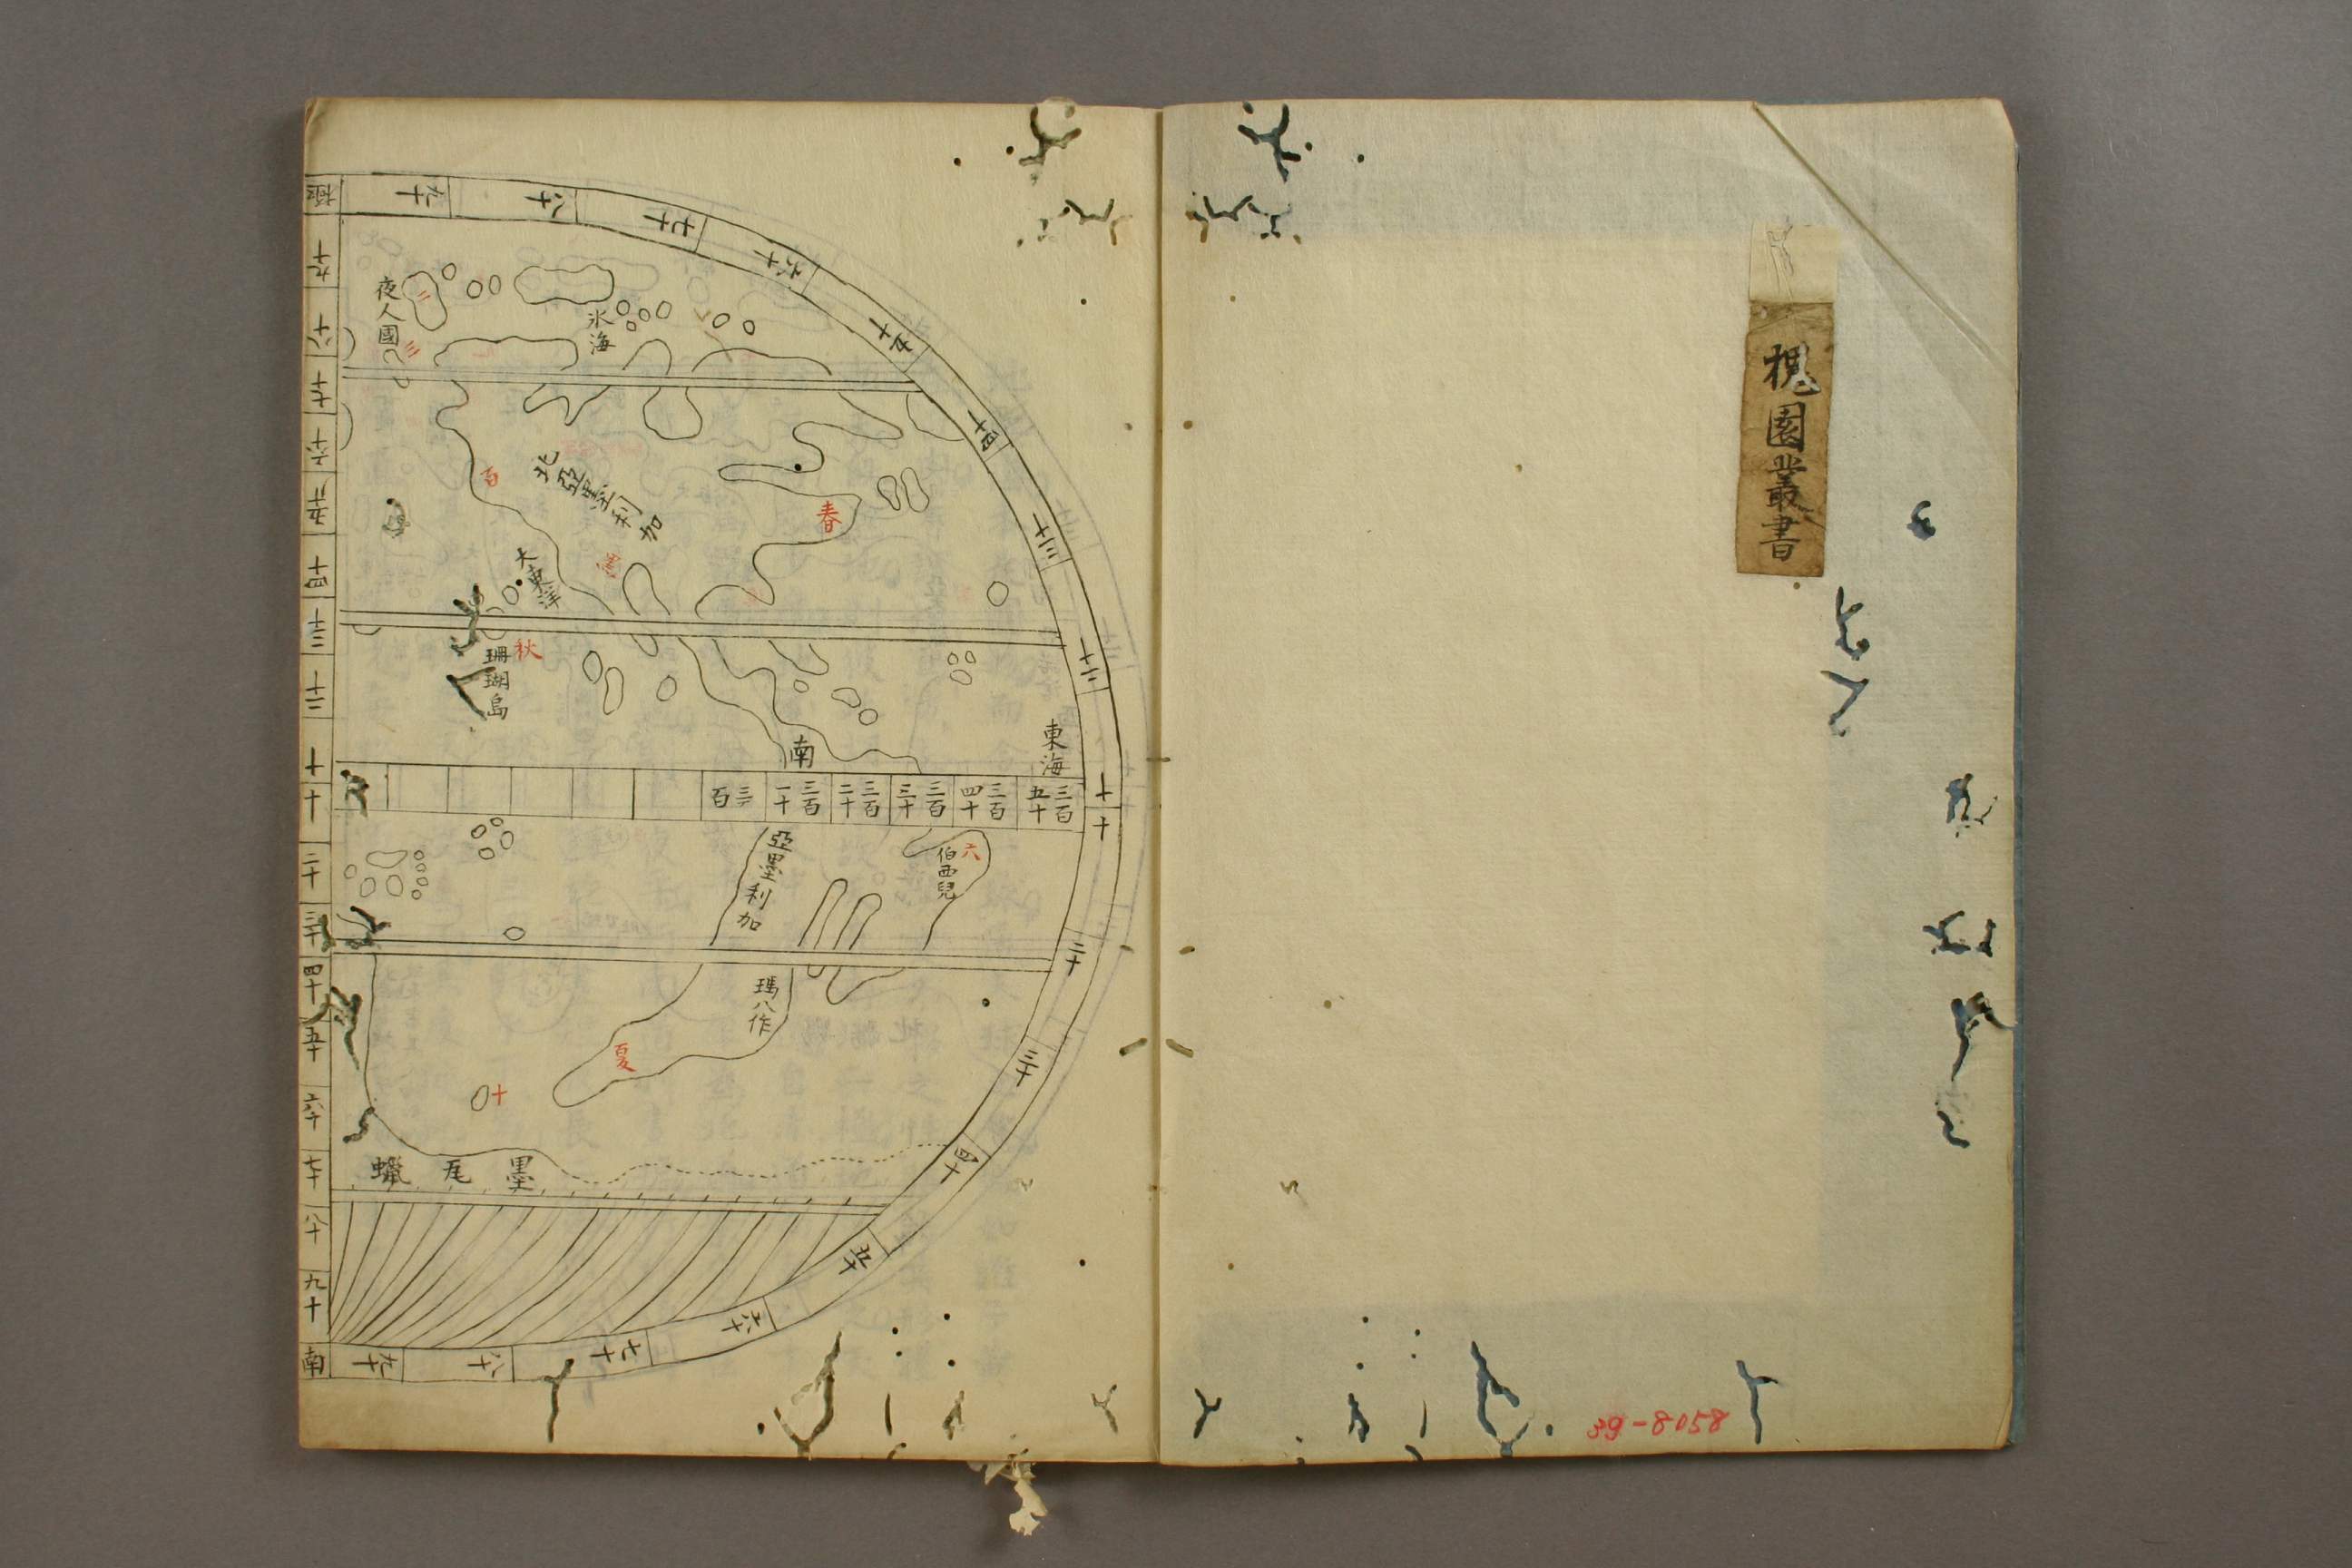 槐園叢書
39-8058
極
九十
八十
七十
六十
五十
四十
三十
二十
十
十
二十
三十
四十
五十
六十
七十
八十
九十
南
九十
八十
七十
六十
五十
四十
三十
二十
十
十
二十
三十
四十
五十
六十
七十
八十
九十
夜人國
二
三
氷海
北亞墨利加
百
春
大東洋
秋
珊瑚島
南
東海
三百五十
三百四十
三百三十
三百二十
三百一十
三百
亞墨利加
六
伯西兒
瑪八作
夏
十
墨
尾
蠟